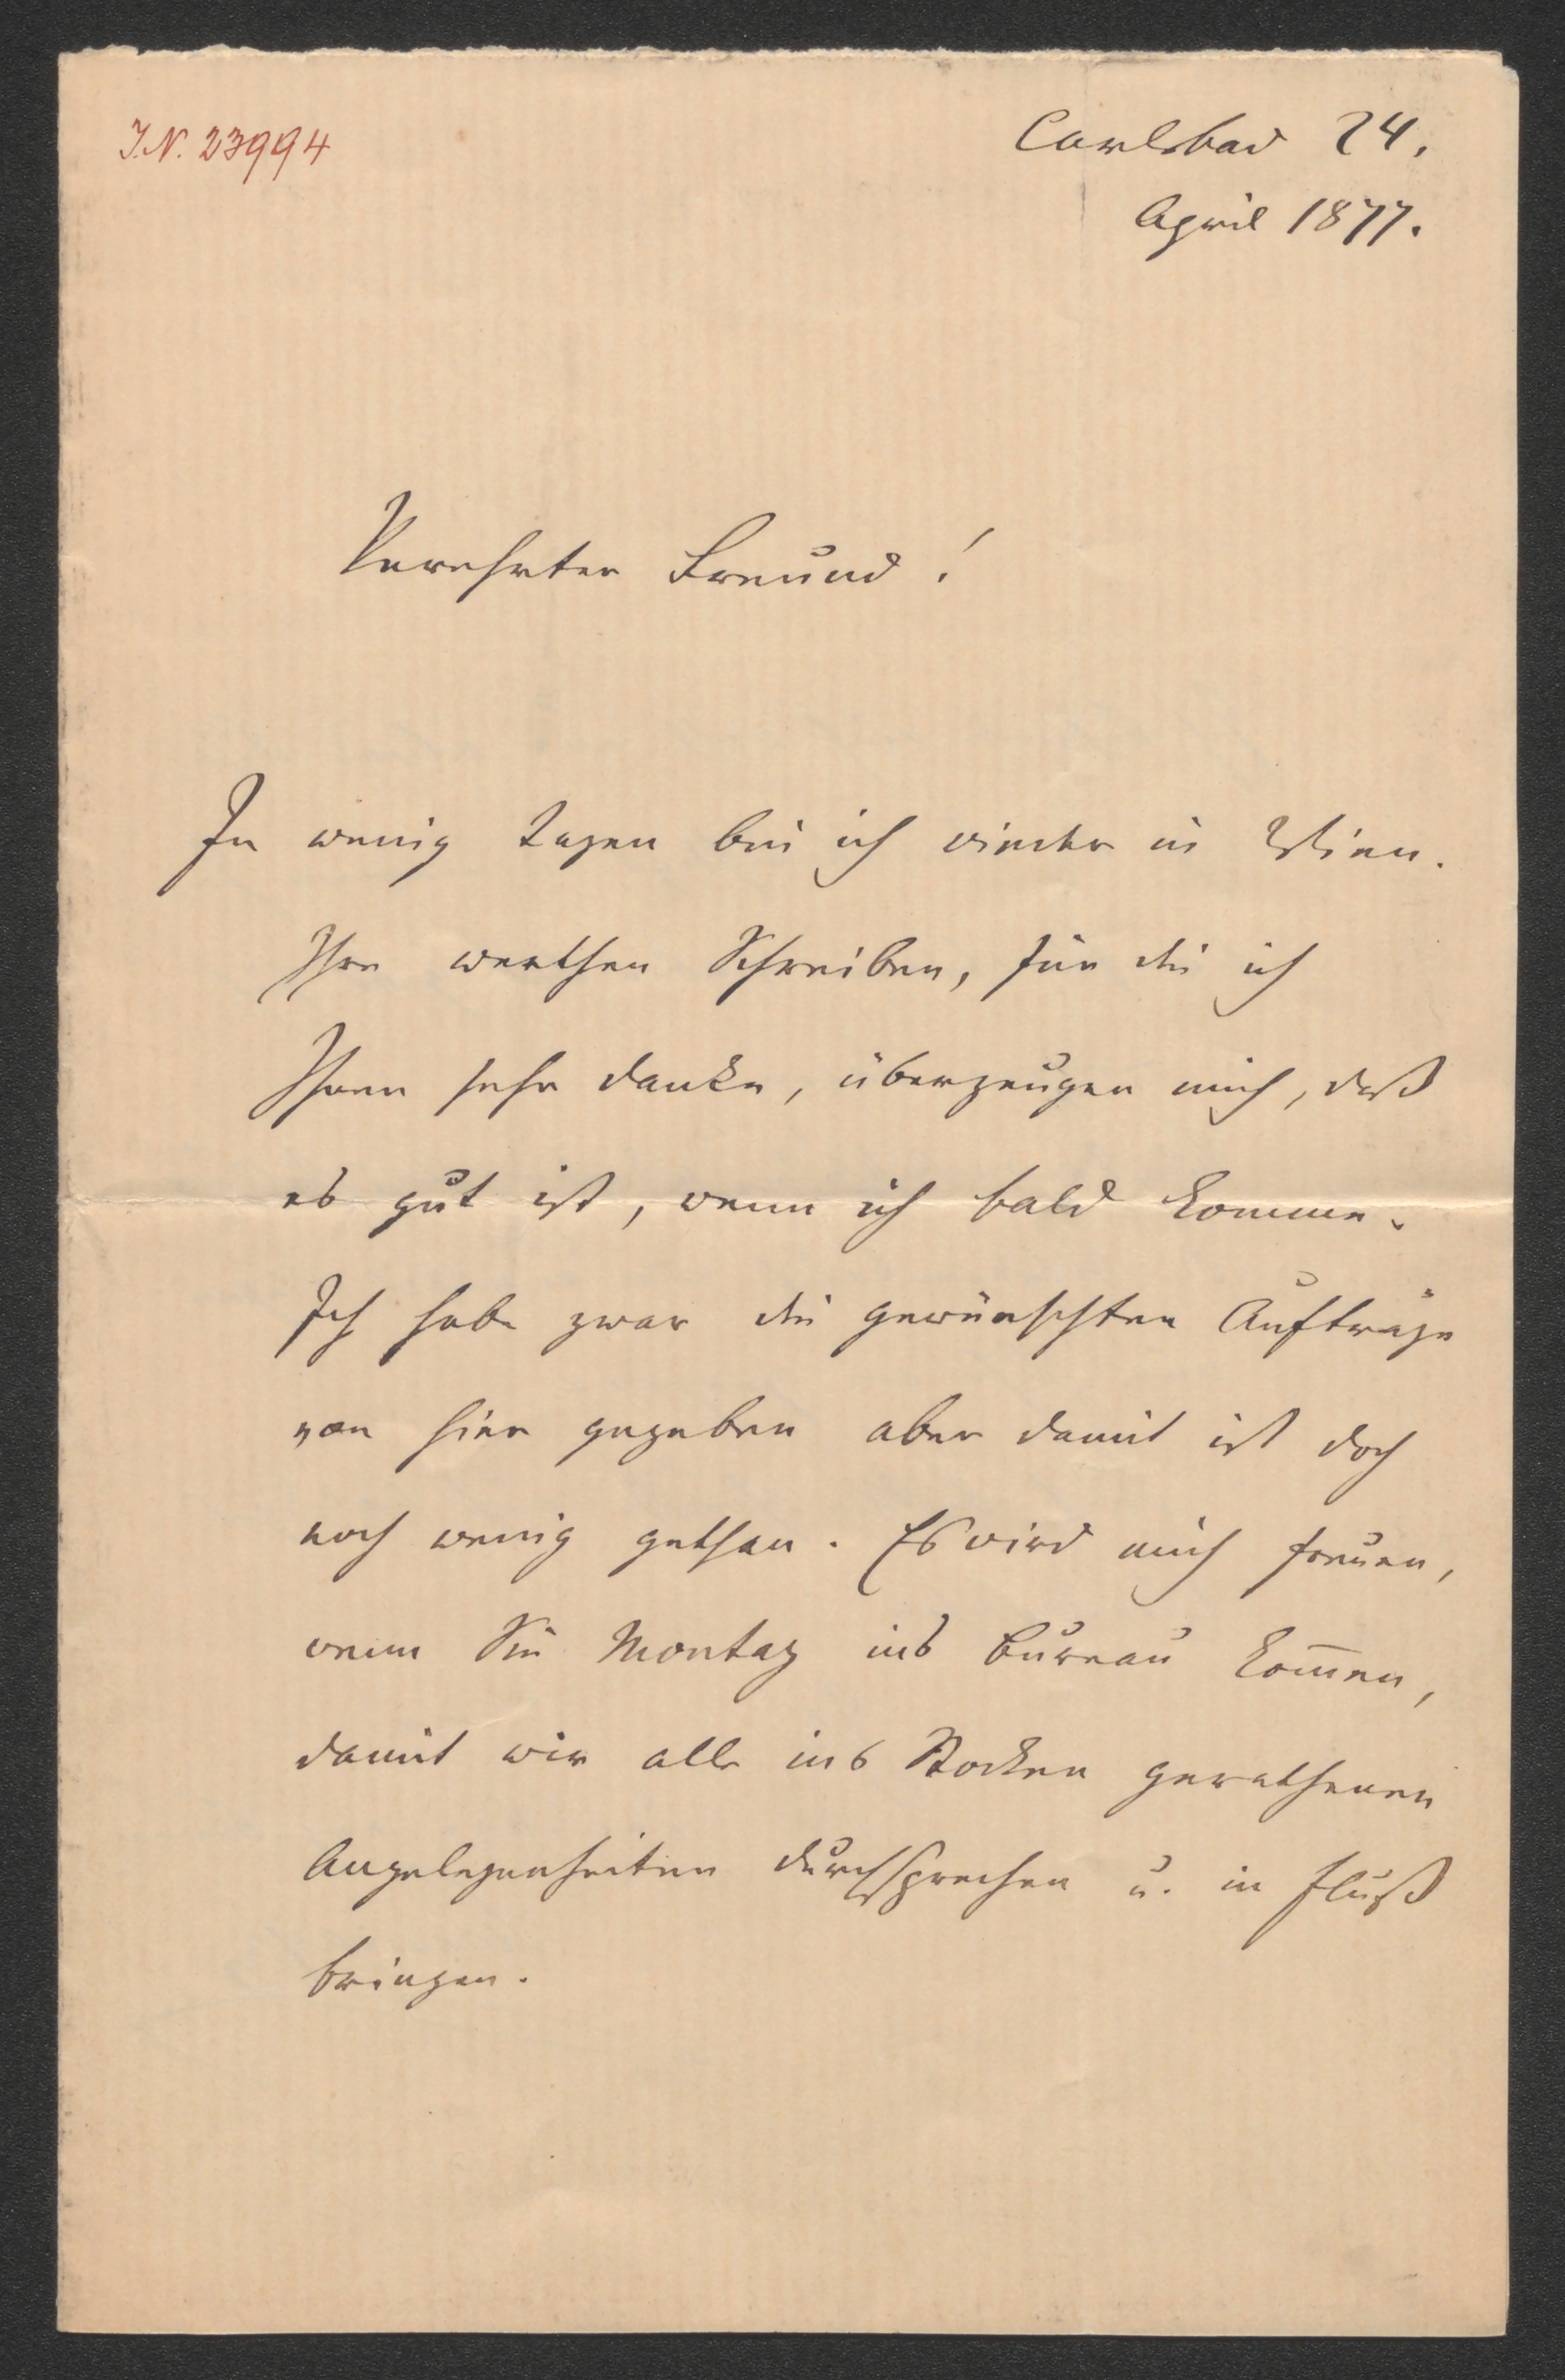 I.N. 23994
Carlsbad 24.
April 1877.
Verehrter Freund!
In wenig Tagen bin ich wieder in Wien.
Ihre werthen Schreiben, für die ich
Ihnen sehr danke, überzeugen mich, daß
es gut ist, wenn ich bald komme.
Ich habe zwar die gewünschten Aufträge
von hier gegeben aber damit ist doch
noch wenig gethan. Es wird mich freuen,
wenn Sie Montag ins Bureau kom̅en,
damit wir alle ins Stocken gerathenen
Angelegenheiten durchsprechen u. in Fluß
bringen.